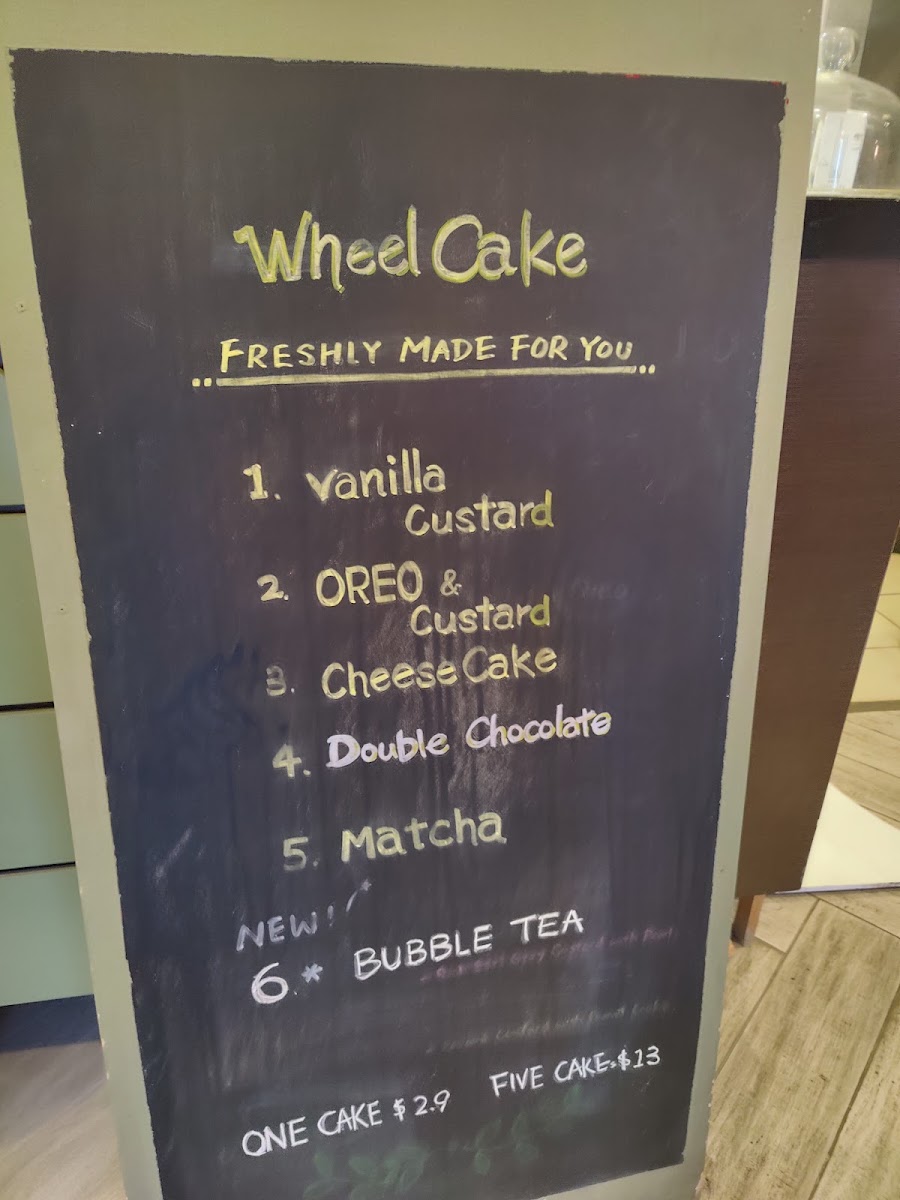 Wheel Cake
FRESHLY MADE FOR YOU
1. Vanilla
Custard
2. OREO &
Custard
3. CheeseCake
4. Double Chocolate
5. Matcha
NEW!
6.* BUBBLE TEA
ONE CAKE $2.9 FIVE CAKES $13